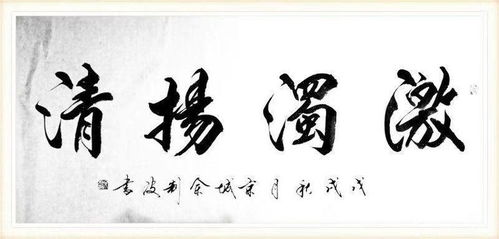 激濁揚清
戊戌秋月京城余制波書